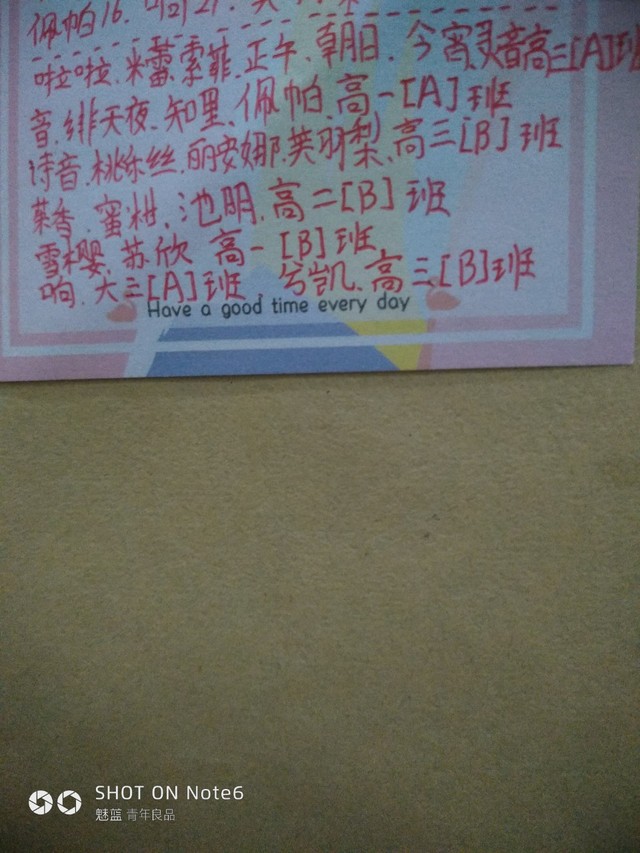 佩帕16.响21.
啦啦、米蕾、索菲、正午、朝日、今宵、灵音高二[A]班
音、绯天夜、知里、佩帕、高一[A]班
诗音、桃乐丝、丽安娜、芙羽梨、高三[B]班
茉香、蜜柑、池明、高二[B]班
雪樱、苏欣 高一[B]班
响、大三[A]班 兮凯、高三[B]班
Have a good time every day
SHOT ON Note6
魅蓝 青年良品